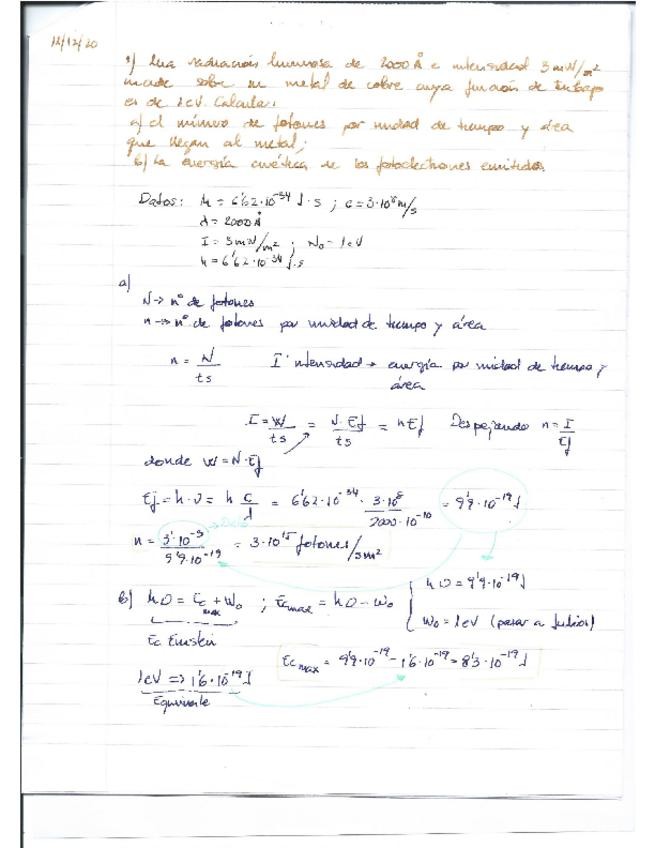 12/12/20
1) Una radiación luminosa de 2000 Å e intensidad 3 mW/m²
incide sobre un metal de cobre cuya función de trabajo
es de 1eV. Calcula:
a) el número de fotones por unidad de tiempo y área
que llegan al metal;
b) La energía cinética de los fotoelectrones emitidos.
Datos: h = 6'62·10⁻³⁴ J·s ; c = 3·10⁸ m/s
λ = 2000 Å
I = 3 mW/m² ; W₀ = 1eV
h = 6'62·10⁻³⁴ J·s
a)
N → nº de fotones
n → nº de fotones por unidad de tiempo y área
n = N/ts I intensidad → energía por unidad de tiempo y
área
I = W/ts = N·Ef/ts = nEf Despejando n = I/Ef
donde W = N·Ef
Ef = h·υ = h c/λ = 6'62·10⁻³⁴ · 3·10⁸/2000·10⁻¹⁰ = 9'9·10⁻¹⁹ J
→ Dato
n = 3·10⁻³/9'9·10⁻¹⁹ = 3·10¹⁵ fotones/sm²
b) hυ = Ec max + W₀ ; Ec max = hυ - W₀ { hυ = 9'9·10⁻¹⁹ J
W₀ = 1eV (pasar a Julios)
Ec Einstein
Ec max = 9'9·10⁻¹⁹ - 1'6·10⁻¹⁹ = 8'3·10⁻¹⁹ J
1eV ⇒ 1'6·10⁻¹⁹ J
Equivale